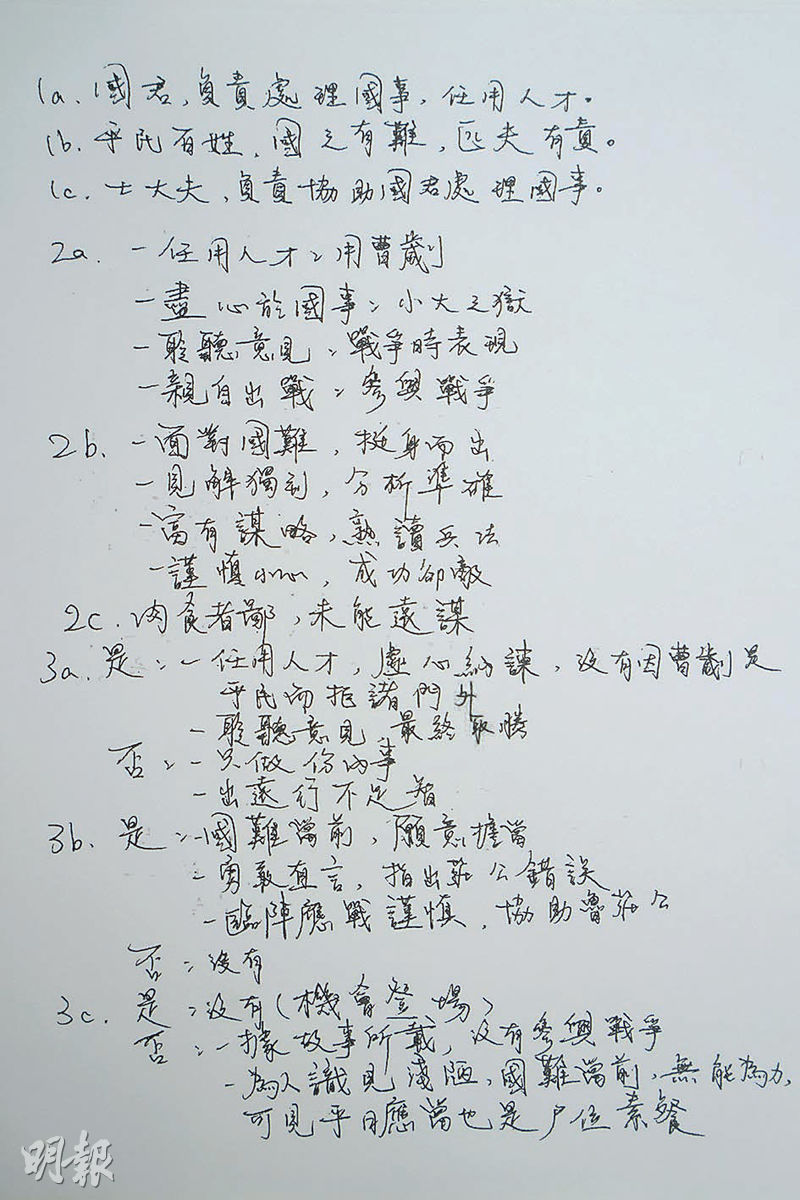 1a. 國君,負責處理國事,任用人才。
1b. 平民百姓,國之有難,匹夫有責。
1c. 士大夫,負責協助國君處理國事。
2a. - 任用人才:用曹歲刂
- 盡心於國事:小大之獄
- 聆聽意見:戰爭時表現
- 親自出戰:參與戰爭
2b. - 面對國難,挺身而出
- 見解獨到,分析準確
- 富有謀略,熟讀兵法
- 謹慎小心,成功卻敵
2c. 肉食者鄙,未能遠謀
3a. 是:- 任用人才,虛心納諫,沒有因曹歲刂是
平民而拒諸門外
- 聆聽意見,最終取勝
否:- 只做份內事
-
3b. 是:- 國難當前,願意擔當
- 勇敢直言,指出莊公錯誤
- 臨陣應戰謹慎,協助魯莊公
否:沒有
3c. 是:沒有(機會登場)
否:- 據故事所載,沒有參與戰爭
- 為人識見淺陋,國難當前,無能為力,
可見平日應當也是尸位素餐
明報